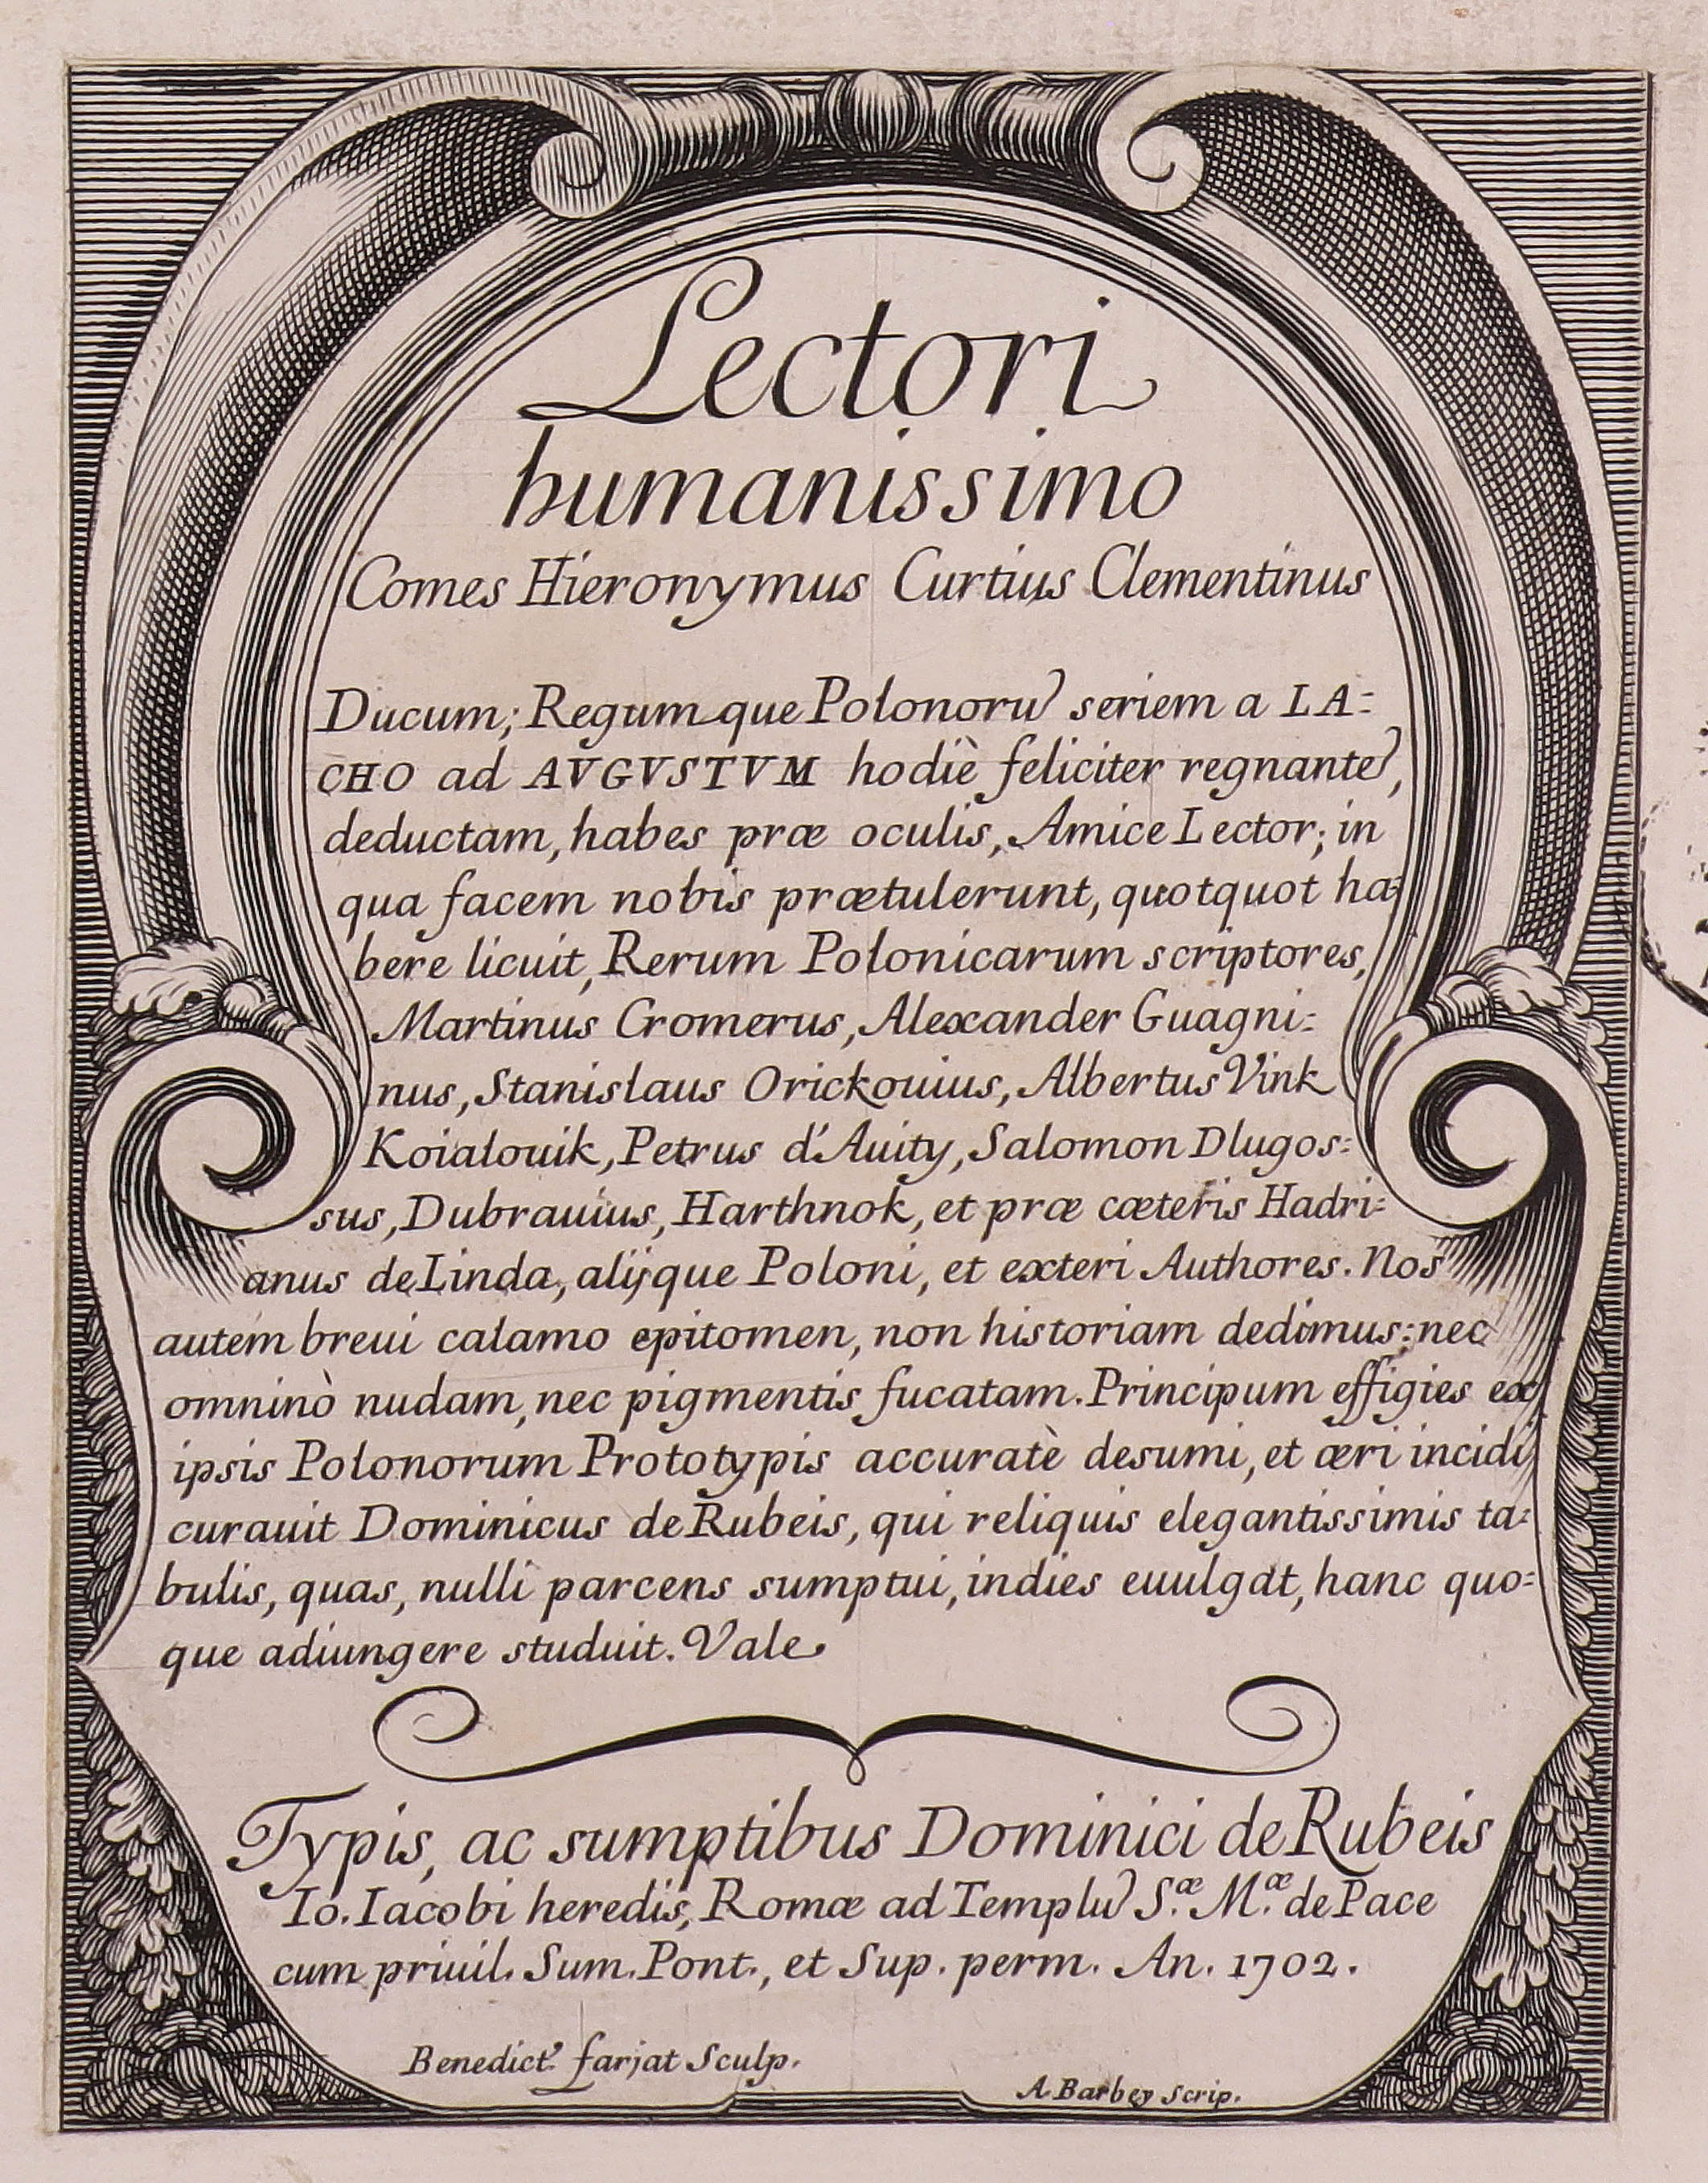 Lectori
humanissimo
Comes Hieronymus Curtius Clementinus
Ducum; Regumque Polonorũ seriem a LA=
CHO ad AVGVSTVM hodiè feliciter regnantẽ,
deductam, habes præ oculis, Amice Lector; in
qua facem nobis prætulerunt, quotquot ha=
bere licuit, Rerum Polonicarum scriptores,
Martinus Cromerus, Alexander Guagni=
nus, Stanislaus Orickouius, Albertus Vink
Koialouik, Petrus d'Auity, Salomon Dlugos=
sus, Dubrauius, Harthnok, et præ cæteris Hadri=
anus de Linda, alijque Poloni, et exteri Authores. Nos
autem breui calamo epitomen, non historiam dedimus: nec
omninò nudam, nec pigmentis fucatam. Principum effigies ex
ipsis Polonorum Prototypis accuratè desumi, et æri incidi
curauit Dominicus de Rubeis, qui reliquis elegantissimis ta=
bulis, quas, nulli parcens sumptui, indies euulgat, hanc quo=
que adiungere studuit. Vale
Typis, ac sumptibus Dominici de Rubeis
Io. Iacobi heredis, Romæ ad Templũ S.æ M.æ de Pace
cum priuil. Sum. Pont., et Sup. perm. An. 1702.
Benedict.9 farjat Sculp.
A. Barbey scrip.